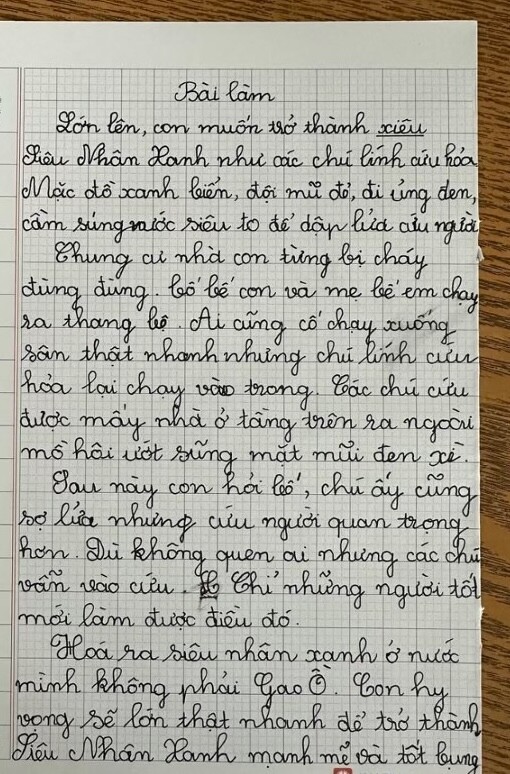 Bài làm
Lớn lên, con muốn trở thành xiêu
Siêu Nhân Xanh như các chú lính cứu hỏa
Mặc đồ xanh biển, đội mũ đỏ, đi ủng đen,
cầm súng nước siêu to để dập lửa cứu người
Chung cư nhà con từng bị cháy
đùng đùng. bố bế con và mẹ bế em chạy
ra thang bộ. Ai cũng cố chạy xuống
sân thật nhanh nhưng chú lính cứu
hỏa lại chạy vào trong. Các chú cứu
được mấy nhà ở tầng trên ra ngoài
mồ hôi ướt sũng mặt mũi đen xì.
Sau này con hỏi bố, chú ấy cũng
sợ lửa nhưng cứu người quan trong
hơn. Dù không quen ai nhưng các chú
vẫn vào cứu. Chỉ những người tốt
mới làm được điều đó.
Hoá ra siêu nhân xanh ở nước
mình không phải Gao Ồ. Con hy
vong sẽ lớn thật nhanh để trở thành
Siêu Nhân Xanh manh mẽ và tốt bung